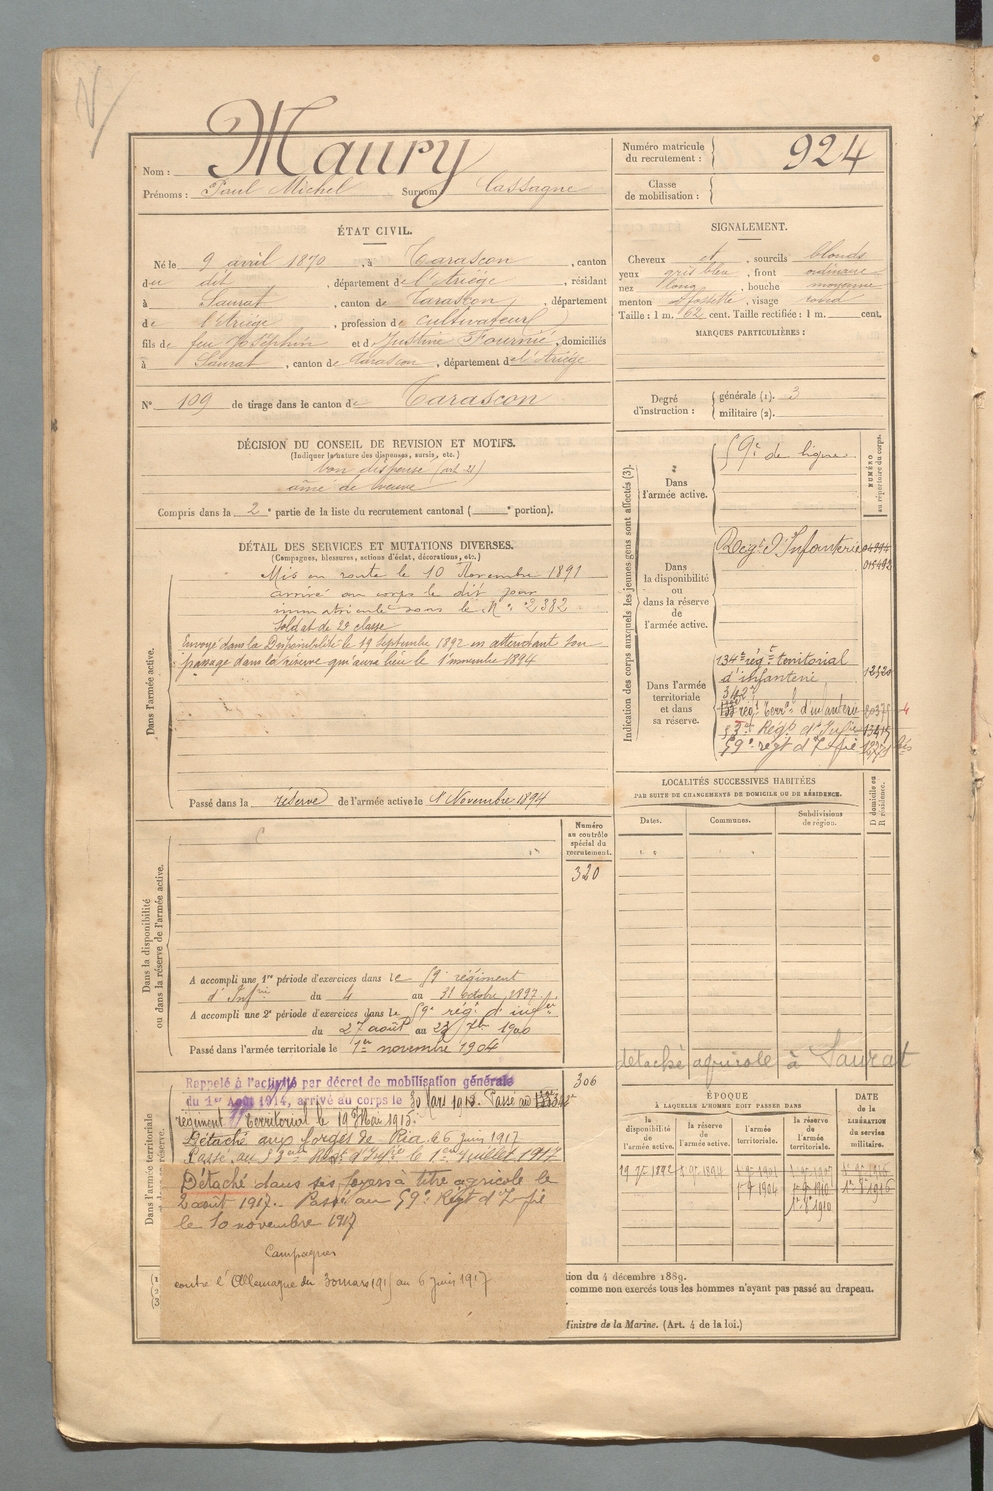 Nom : Maury
Prénoms : Paul Michel Surnom Cassagne
Numéro matricule du recrutement : 924
Classe de mobilisation :
ÉTAT CIVIL.
Né le 9 avril 1870, à Tarascon, canton
du dit, département de l'Ariège, résidant
à Saurat, canton de Tarascon, département
de l'Ariège, profession de cultivateur
fils de feu Joséphin et de Justine Fournié, domiciliés
à Saurat, canton de Tarascon, département de l'Ariège
N° 109 de tirage dans le canton de Tarascon
SIGNALEMENT.
Cheveux et, sourcils blonds
yeux gris bleu, front ordinaire
nez long, bouche moyenne
menton à fossette, visage rond
Taille : 1 m. 62 cent. Taille rectifiée : 1 m. cent.
MARQUES PARTICULIÈRES :
Degré d'instruction : générale (1). 3
militaire (2).
DÉCISION DU CONSEIL DE REVISION ET MOTIFS.
(Indiquer la nature des dispenses, sursis, etc.)
bon dispensé (art. 21)
aîné de veuve
Compris dans la 2e partie de la liste du recrutement cantonal ( e portion).
DÉTAIL DES SERVICES ET MUTATIONS DIVERSES.
(Campagnes, blessures, actions d'éclat, décorations, etc.)
Dans l'armée active.
Mis en route le 10 Novembre 1891
arrivé au corps le dit jour
immatriculé sous le N° 2382
Soldat de 2e classe
Envoyé dans la Disponibilité le 19 Septembre 1892 en attendant son
passage dans la réserve qui aura lieu le 1 novembre 1894
Passé dans la réserve de l'armée active le 1 Novembre 1894
Indication des corps auxquels les jeunes gens sont affectés (3).
NUMÉRO au répertoire du corps.
Dans l'armée active.
59e de ligne
Dans la disponibilité ou dans la réserve de l'armée active.
Régt d'Infanterie
Dans l'armée territoriale et dans sa réserve.
134e rég.t territorial
d'infanterie 12520
rég.t Terr.l d'infanterie
53e Régt d'Inf.ie
59e régt d'Inf.ie
LOCALITÉS SUCCESSIVES HABITÉES
PAR SUITE DE CHANGEMENTS DE DOMICILE OU DE RÉSIDENCE.
Dates. Communes. Subdivisions de région. D domicile ou R résidence.
détaché agricole à Saurat
Numéro au contrôle spécial du recrutement.
320
Dans la disponibilité ou dans la réserve de l'armée active.
A accompli une 1re période d'exercices dans le 59e régiment
d'Inf.rie du 4 au 31 Octobre 1897.
A accompli une 2e période d'exercices dans le 59e rég.t d'inf.er
du 27 août au 23 7bre 1900
Passé dans l'armée territoriale le 1er novembre 1904
306
Dans l'armée territoriale réserve.
Rappelé à l'activité par décret de mobilisation générale
du 1er Août 1914, arrivé au corps le 30 Mars 1915. Passé au
régiment Territorial le 19 Mai 1915.
Détaché aux forges de Ria le 6 juin 1917
Passé au 53eme Régt d'Inf.ie le 1er Juillet 1917
Détaché dans ses foyers à titre agricole le
2 août 1917. Passé au 59e Régt d'Inf.ie
le 10 novembre 1917
Campagnes
contre l'Allemagne du 30 mars 1915 au 6 juin 1917
ÉPOQUE
À LAQUELLE L'HOMME DOIT PASSER DANS
la disponibilité de l'armée active. la réserve de l'armée active. l'armée territoriale. la réserve de l'armée territoriale.
DATE de la LIBÉRATION du service militaire.
tion du 4 décembre 1889.
comme non exercés tous les hommes n'ayant pas passé au drapeau.
Ministre de la Marine. (Art. 4 de la loi.)